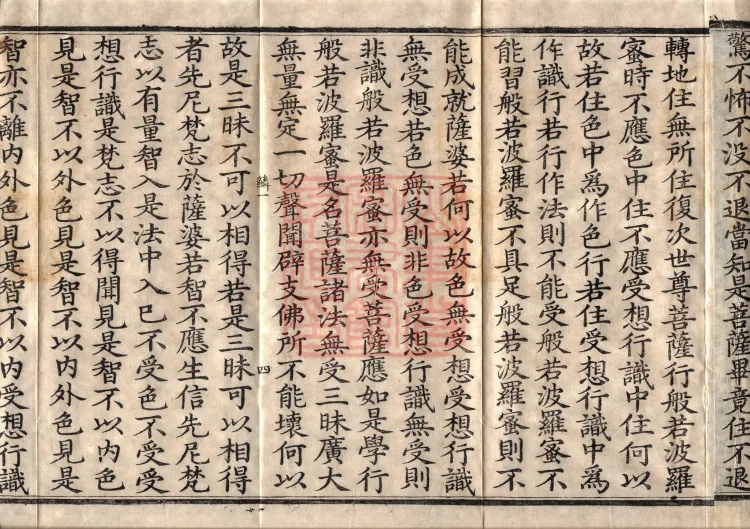 驚不怖不没不退當知是菩薩畢竟住不退
轉地住無所住復次世尊菩薩行般若波羅
蜜時不應色中住不應受想行識中住何以
故若住色中爲作色行若住受想行識中爲
作識行若行作法則不能受般若波羅蜜不
能習般若波羅蜜不具足般若波羅蜜則不
能成就薩婆若何以故色無受想受想行識
無受想若色無受則非色受想行識無受則
非識般若波羅蜜亦無受菩薩應如是學行
般若波羅蜜是名菩薩諸法無受三昧廣大
無量無定一切聲聞辟支佛所不能壞何以
鱗一 四
故是三昧不可以相得若是三昧可以相得
者先尼梵志於薩婆若智不應生信先尼梵
志以有量智入是法中入已不受色不受受
想行識是梵志不以得聞見是智不以内色
見是智不以外色見是智不以内外色見是
智亦不離内外色見是智不以内受想行識